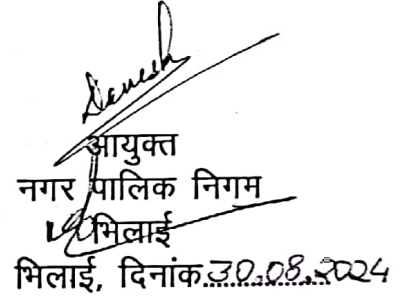 आयुक्त
नगर पालिक निगम
भिलाई
भिलाई, दिनांक 30.08.2024